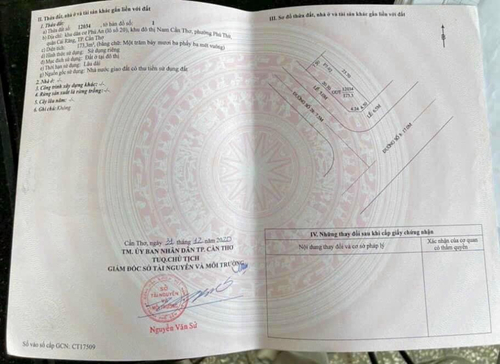 II. Thửa đất, nhà ở và tài sản khác gắn liền với đất
1. Thửa đất:
a) Thửa đất số: 12034 , tờ bản đồ số: 1
b) Địa chỉ: khu dân cư Phú An (lô số 20), khu đô thị Nam Cần Thơ, phường Phú Thứ,
quận Cái Răng, TP. Cần Thơ
c) Diện tích: 173,3m², (bằng chữ: Một trăm bảy mươi ba phẩy ba mét vuông)
d) Hình thức sử dụng: Sử dụng riêng
đ) Mục đích sử dụng: Đất ở tại đô thị
e) Thời hạn sử dụng: Lâu dài
g) Nguồn gốc sử dụng: Nhà nước giao đất có thu tiền sử dụng đất
2. Nhà ở: -/-
3. Công trình xây dựng khác: -/-
4. Rừng sản xuất là rừng trồng: -/-
5. Cây lâu năm: -/-
6. Ghi chú: Không
Cần Thơ, ngày tháng 12 năm
TM. ỦY BAN NHÂN DÂN TP. CẦN THƠ
TUQ.CHỦ TỊCH
GIÁM ĐỐC SỞ TÀI NGUYÊN VÀ MÔI TRƯỜNG
SỞ
TÀI NGUYÊN
Nguyễn Văn Sử
Số vào sổ cấp GCN: CT17509
III. Sơ đồ thửa đất, nhà ở và tài sản khác gắn liền với đất
12034
ODT
LỀ
LỀ
ĐƯỜNG SỐ
ĐƯỜNG SỐ
IV. Những thay đổi sau khi cấp giấy chứng nhận
Nội dung thay đổi và cơ sở pháp lý
Xác nhận của cơ quan
có thẩm quyền